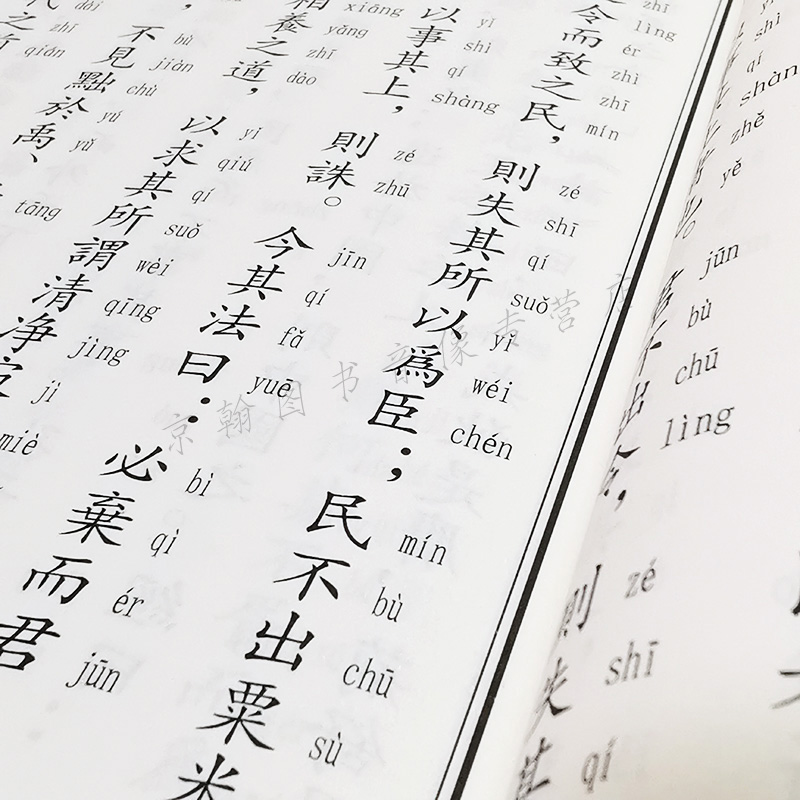 令而致之民，則失其所以爲臣；民不出粟米
lìng ér zhì zhī mín zé shī qí suǒ yǐ wéi chén mín bù chū sù
以事其上，則誅。今其法曰：必棄而君
yǐ shì qí shàng zé zhū jīn qí fǎ yuē bì qì ér jūn
相養之道，以求其所謂清净寂
xiāng yǎng zhī dào yǐ qiú qí suǒ wèi qīng jìng jì miè
不見黜於禹、
bù jiàn chù yú yǔ tāng
代之前
zhī qián
不出令，則失其
shàng zhě yě jūn bù chū lìng zé shī qí
京翰图书